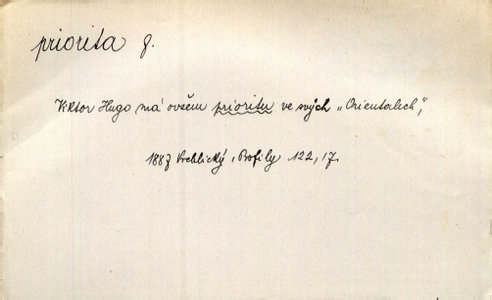 priorita f.
Viktor Hugo má ovšem prioritu ve svých „Orientalech",
1887 Vrchlický, Profily 122, 17.